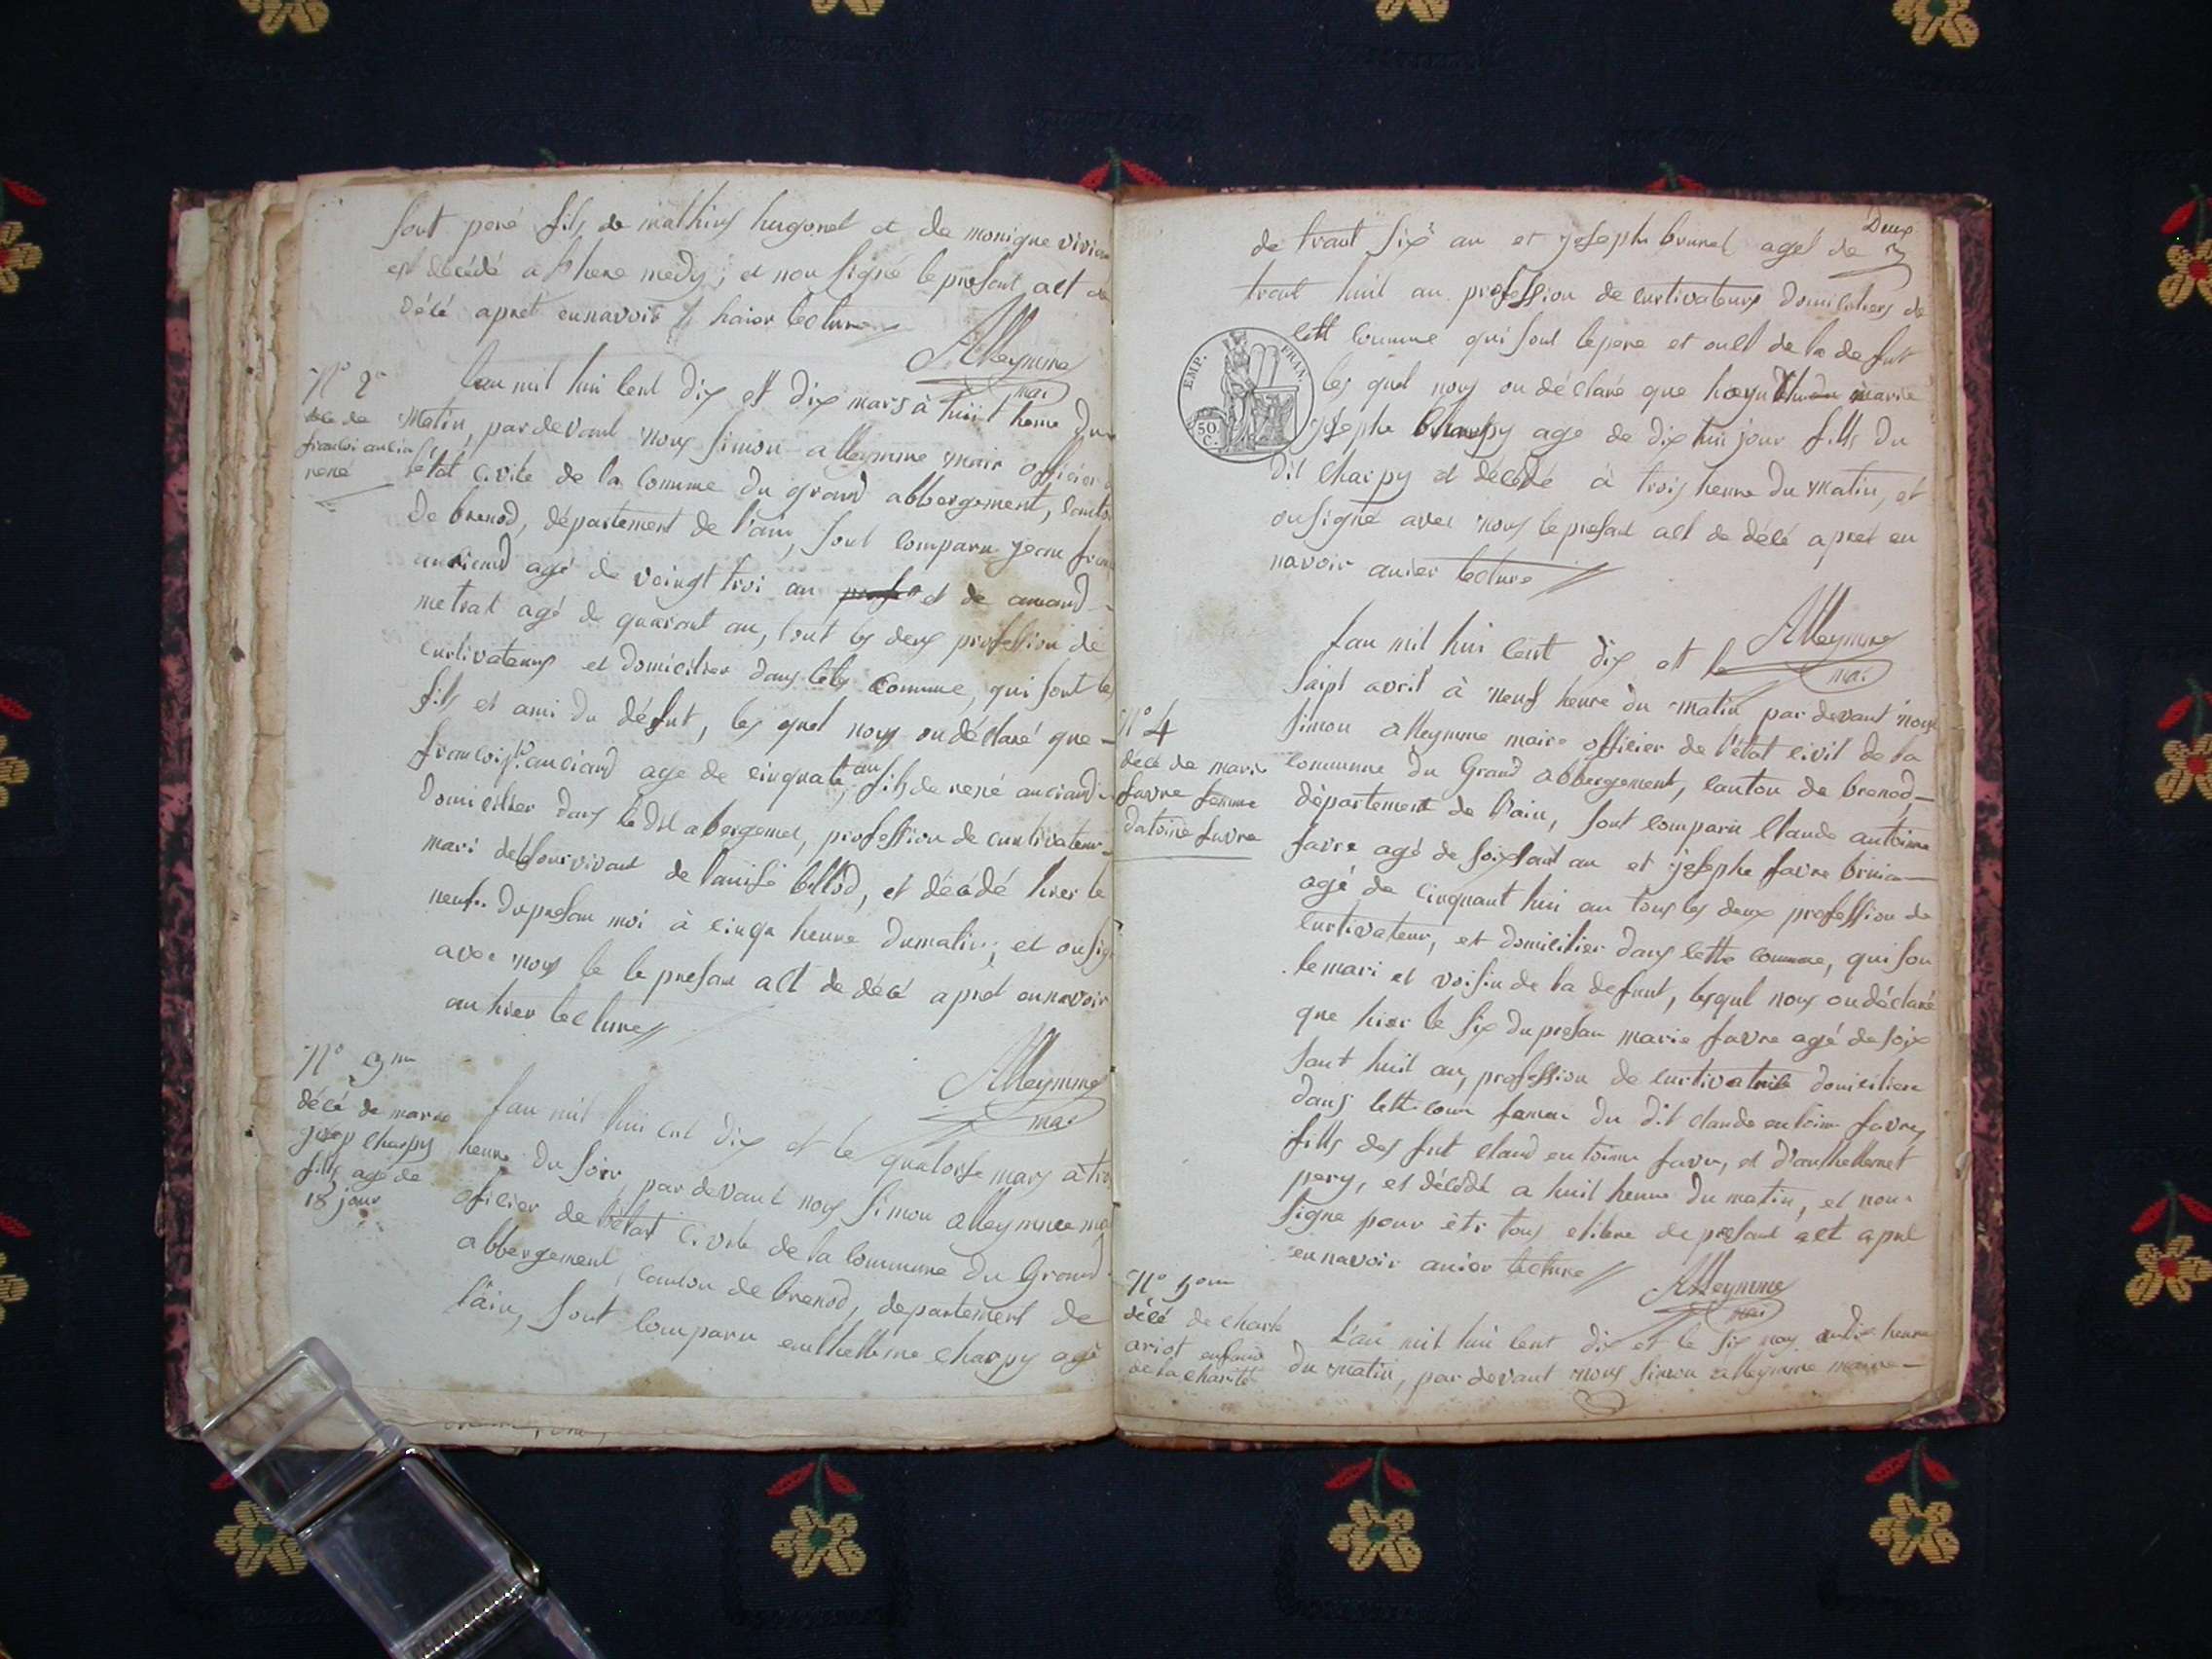 sont peré fils de mathieux hugonet et de monique vivie
est décédé a heure medy; et non signé le present act de
décé apret ennavoir haier lecture
Alleymme
mai
N° 2
déce de
francoi anciand
rené
Lan mil hui cent dix et dix mars à huit heure du
matin, par devant nous simon alleymme mair officier
létat civile de la comune du grand abbergement, canton
de brenod, département de l'ain, sont comparu jean fran
anciand agé de veingt troi an et de amand
metrat agé de quarant an, tout les deux profession de
curtivateurs et domicilier dans cete Comune, qui sont le
fils et ami du défut, les quel nous on déclaré que
francois anciand age de cinquate an, fils de rené anciand
domicilier dans le dit abergemet, profession de curtivateur
mari de sourvivant de louise billod, et décédé hier le
neuf du presan moi à cinqe heure dumatin; et on sig
avec nous le le presan act de décé apret ennavoir
an hier lecture
Alleymme
mai
N° 3me
décé de marie
josep charpy
fils agé de
18 jour
Lan mil hui cent dix et le quatorse mars à troi
heure du soir, par devant nous simon alleymme mai
oficier de l'état civile de la commune du Grand
abbergement, canton de brenod, departement de
l'ain, sont comparu enthellme charpy agé
Deux
de trant six an et joseph brunet agé de
trant huit an profession de curtivateurs domiciliers de
cett comune qui sont le pere et oncl de la defut
les quel nous on déclaré que marie
josephe charpy age de dix hui jour fills du
dit charpy et décédé à trois heure du matin, et
on signé avec nous le presant act de décé apret en
navoir anier lecture
Alleymme
mai
EMP. FRAN.
50 C.
N° 4
décé de marie
favre femme
datoine favre
Lan mil hui cent dix et le
saipt avril à neuf heure du matin par devant nous
simon alleymme maire officier de l'état civil de la
commune du Grand abbergement, canton de brenod,
département de l'ain, sont comparu Claude antoine
favre agé de soixsant an et josephe favre
agé de cinquant hui an tous les deux profession de
curtivateur, et domicilier dans cette comune, qui son
le mari et voisin de la defunt, lesquel nous on déclaré
que hier le six du presan marie favre agé de soix
sant huit an, profession de curtivatrice domiciliere
dans cett com femm du dit claude entoine favre,
fills des fut claud entoinne favre, et d'anthellemet
pery, et décédé a huit heure du matin, et non
signe pour etr tous de presant act apret
ennavoir anier lecture
Alleymme
mai
N° 5me
décé de charle
ariot enfant
de la charité
L'an mil hui cent dix et le six may a dix heure
du matin, par devant nous simon alleymme maire